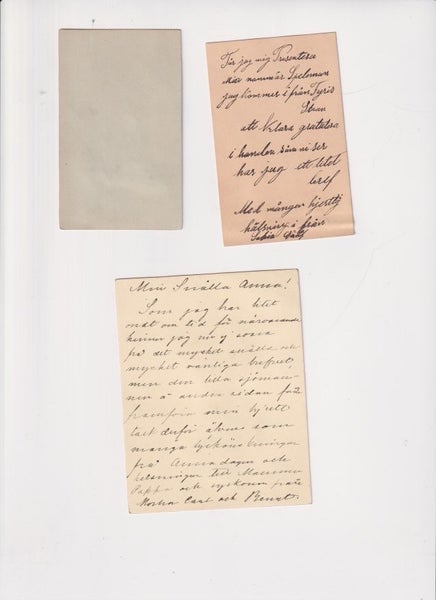 Får jag mig Presentera
Mitt namn är Spelman
jag kommer ifrån Fyris
Åkran
att Klara gratulera
i handen som ni ser
har jag ett litet
bref
Med många hjertlig
hälsning ifrån
Min Snälla Anna!
Som jag har litet
ondt om tid för närvarande
hinner jag nu ej svara
på det mycket snälla och
mycket vänliga brefvet,
men den lilla sjöman-
nen å andra sidan får
framföra min hjertl
tack derför äfvensom
många lyckönskningar
på Annadagen och
helsningar till Mamma
Pappa och syskonen från
Moster Carl och Bengt